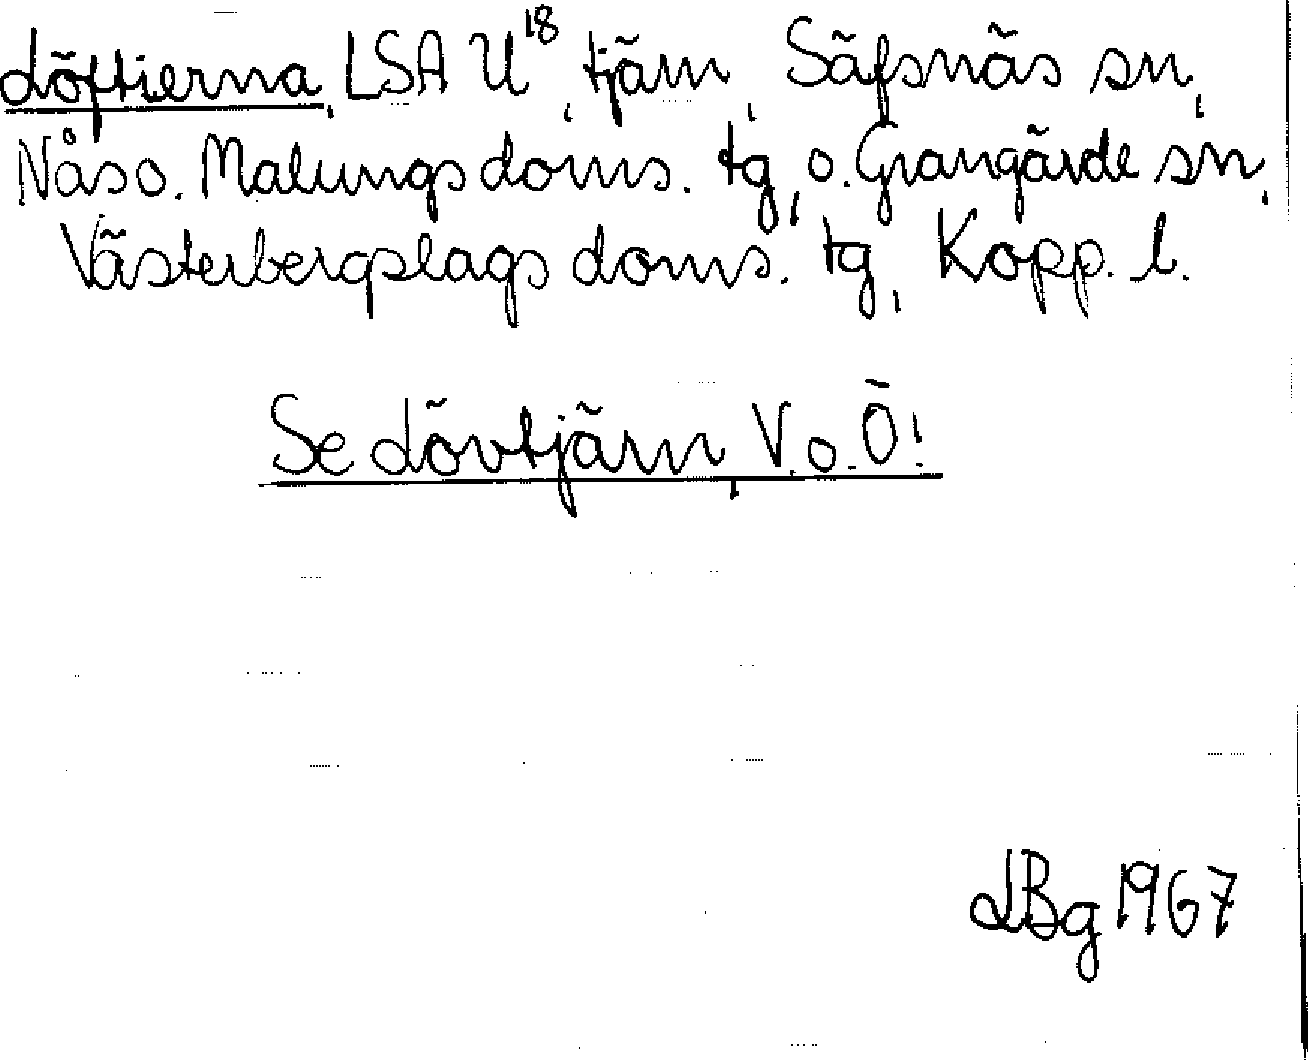 Löftierna, LSA U¹⁸, tjärn, Säfsnäs sn,
Nås o. Malungs doms. tg, o. Grangärde sn,
Västerbergslags doms. tg, Kopp. l.
Se Lövtjärn, V. o. Ö!
LBg 1967